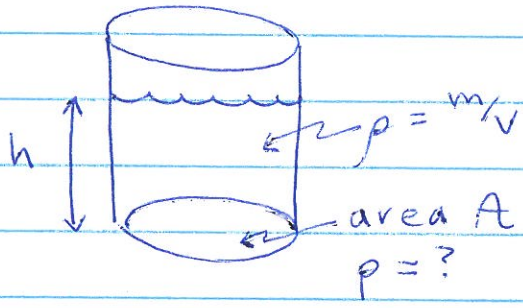 ρ = m/V
h
area A
p = ?